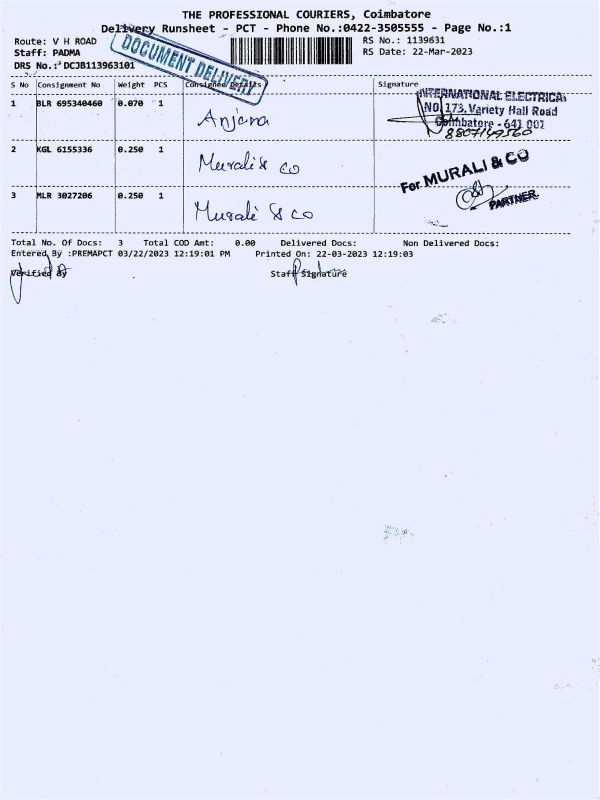 THE PROFESSIONAL COURIERS, Coimbatore
Delivery Runsheet - PCT - Phone No.:0422-3505555 - Page No.:1
Route: V H ROAD
Staff: PADMA
DRS No.: DCJB113963101
DOCUMENT DELIVERY
RS No.: 1139631
RS Date: 22-Mar-2023
S No Consignment No Weight PCS Consignee Details Signature
1 BLR 695340460 0.070 1 Anjana
INTERNATIONAL ELECTRICAL
NO. 173, Variety Hall Road
Coimbatore - 641 001
2 KGL 6155336 0.250 1 Murali & co
For MURALI & CO
PARTNER
3 MLR 3027206 0.250 1 Murali & co
Total No. Of Docs: 3 Total COD Amt: 0.00 Delivered Docs: Non Delivered Docs:
Entered By :PREMAPCT 03/22/2023 12:19:01 PM Printed On: 22-03-2023 12:19:03
Verified By Staff Signature